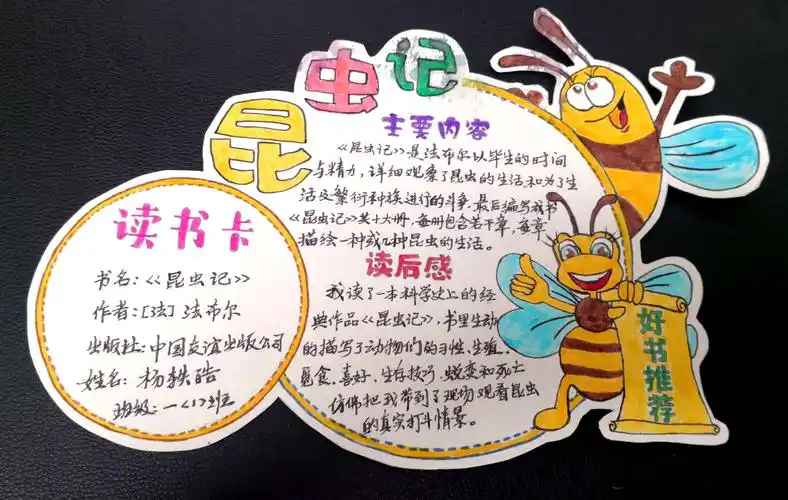 昆虫记
主要内容
《昆虫记》是法布尔以毕生的时间
与精力，详细观察了昆虫的生活和为了生
活及繁衍种族进行的斗争，最后编写成书
《昆虫记》共十大册，每册包含若干章，每章
描绘一种或几种昆虫的生活。
读后感
我读了一本科学史上的经
典作品《昆虫记》，书里生动
的描写了动物们的习性、生殖、
觅食、喜好、生存技巧、蜕变和死亡
仿佛把我带到了现场观看昆虫
的真实打斗情景。
读书卡
书名：《昆虫记》
作者：[法] 法布尔
出版社：中国友谊出版公司
姓名：杨轶皓
班级：一〈1〉班
好书推荐